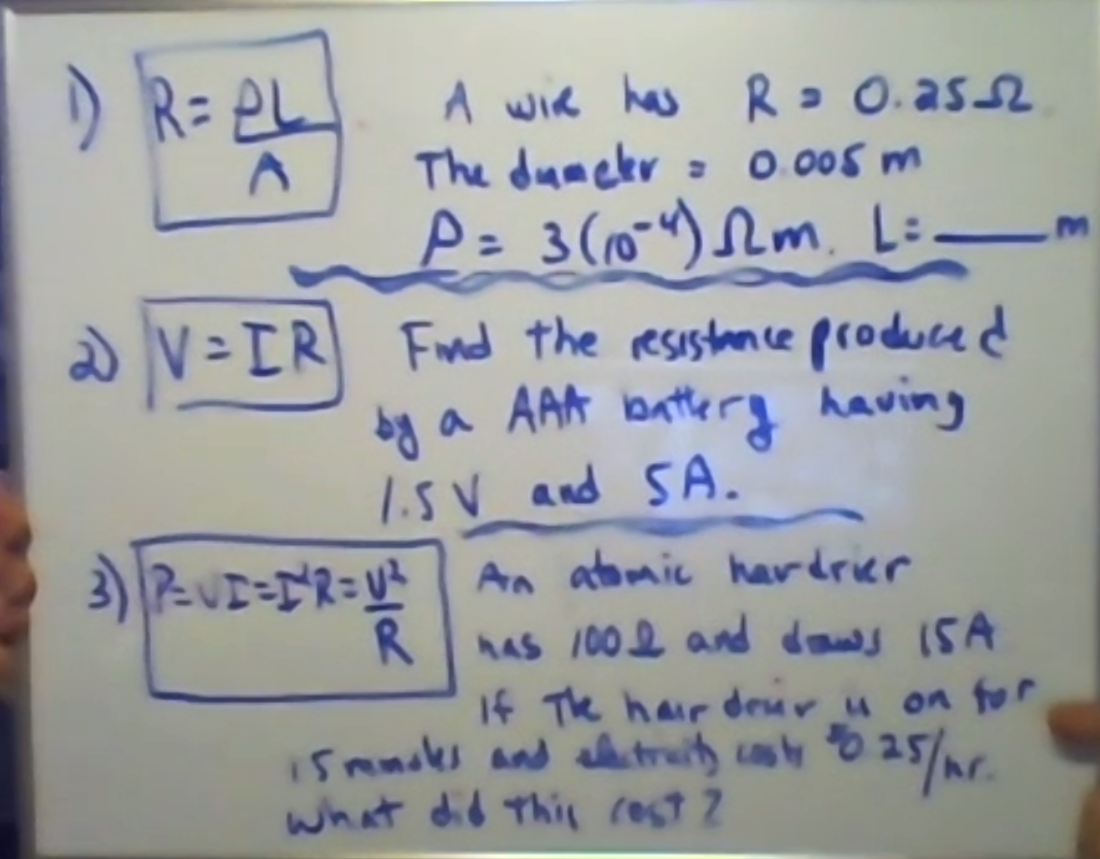 1) R = ρL/A A wire has R = 0.25Ω
The diameter = 0.005 m
ρ = 3(10⁻⁴) Ωm. L = ____ m
2) V = IR Find the resistance produced
by a AAA battery having
1.5 V and 5A.
3) P = VI = I²R = V²/R An atomic hairdrier
has 100Ω and draws 15A
If The hair drier is on for
15 minutes and electricity costs $0.25/hr.
What did this cost?